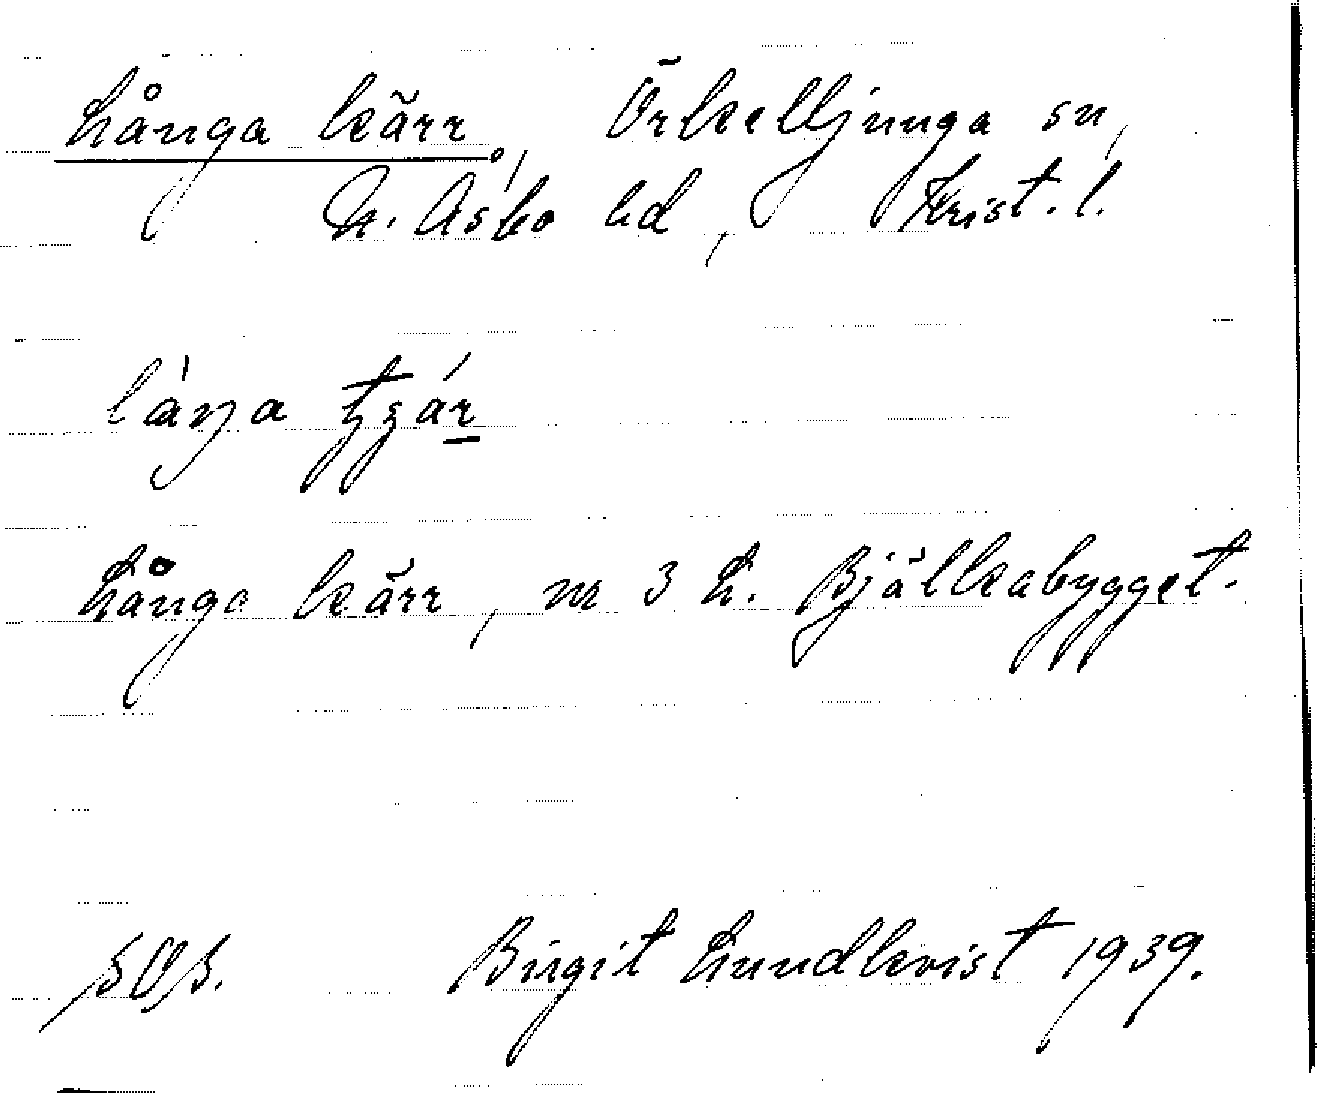 Långa kärr, Örkelljunga sn,
N. Åsbo hd, Krist. l.
Långa kärr, nr 3 L. Bjälkabygget.
Birgit Lundkvist 1939.